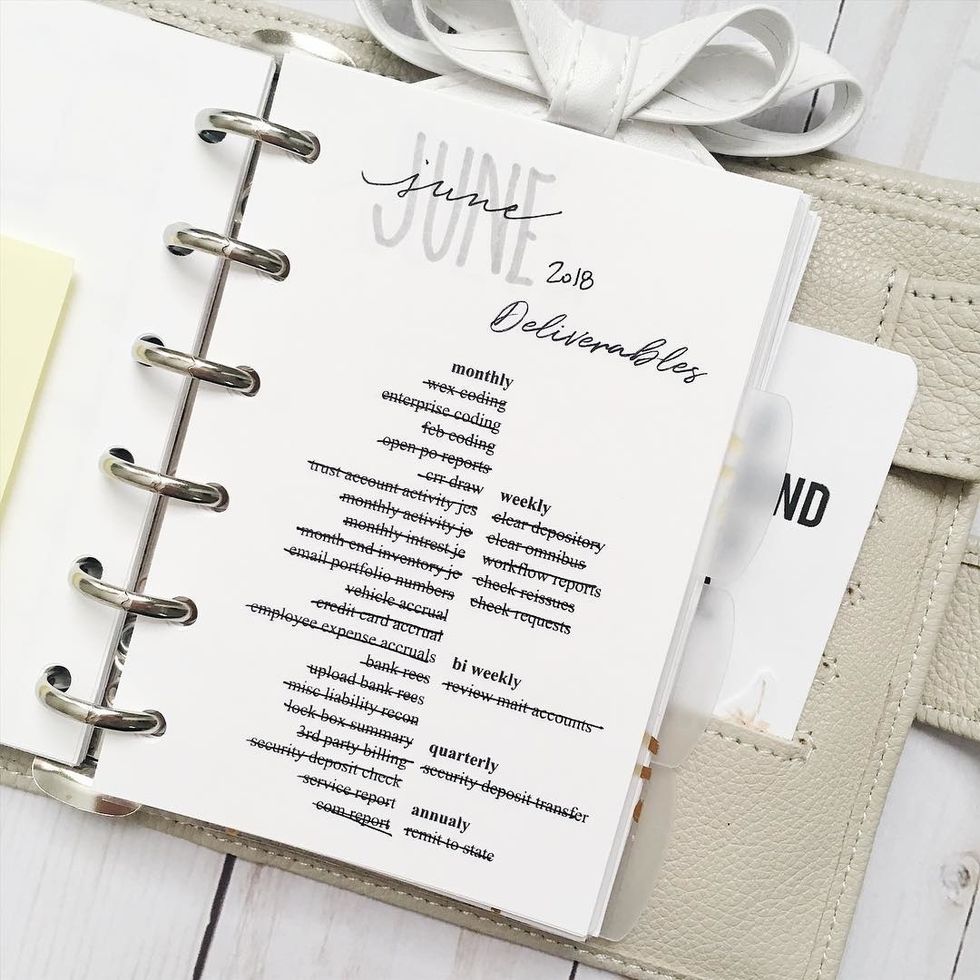 JUNE
june
2018
Deliverables
monthly
wex coding
enterprise coding
fcb coding
open po reports
crr draw
trust account activity jes
monthly activity je
monthly intrest je
month end inventory je
email portfolio numbers
vehicle accrual
credit card accrual
employee expense accruals
bank recs
upload bank recs
misc liability recon
lock box summary
3rd party billing
security deposit check
service report
com report
weekly
clear depository
clear omnibus
workflow reports
check reissues
check requests
bi weekly
review mait accounts
quarterly
security deposit transfer
annualy
remit to state
ND